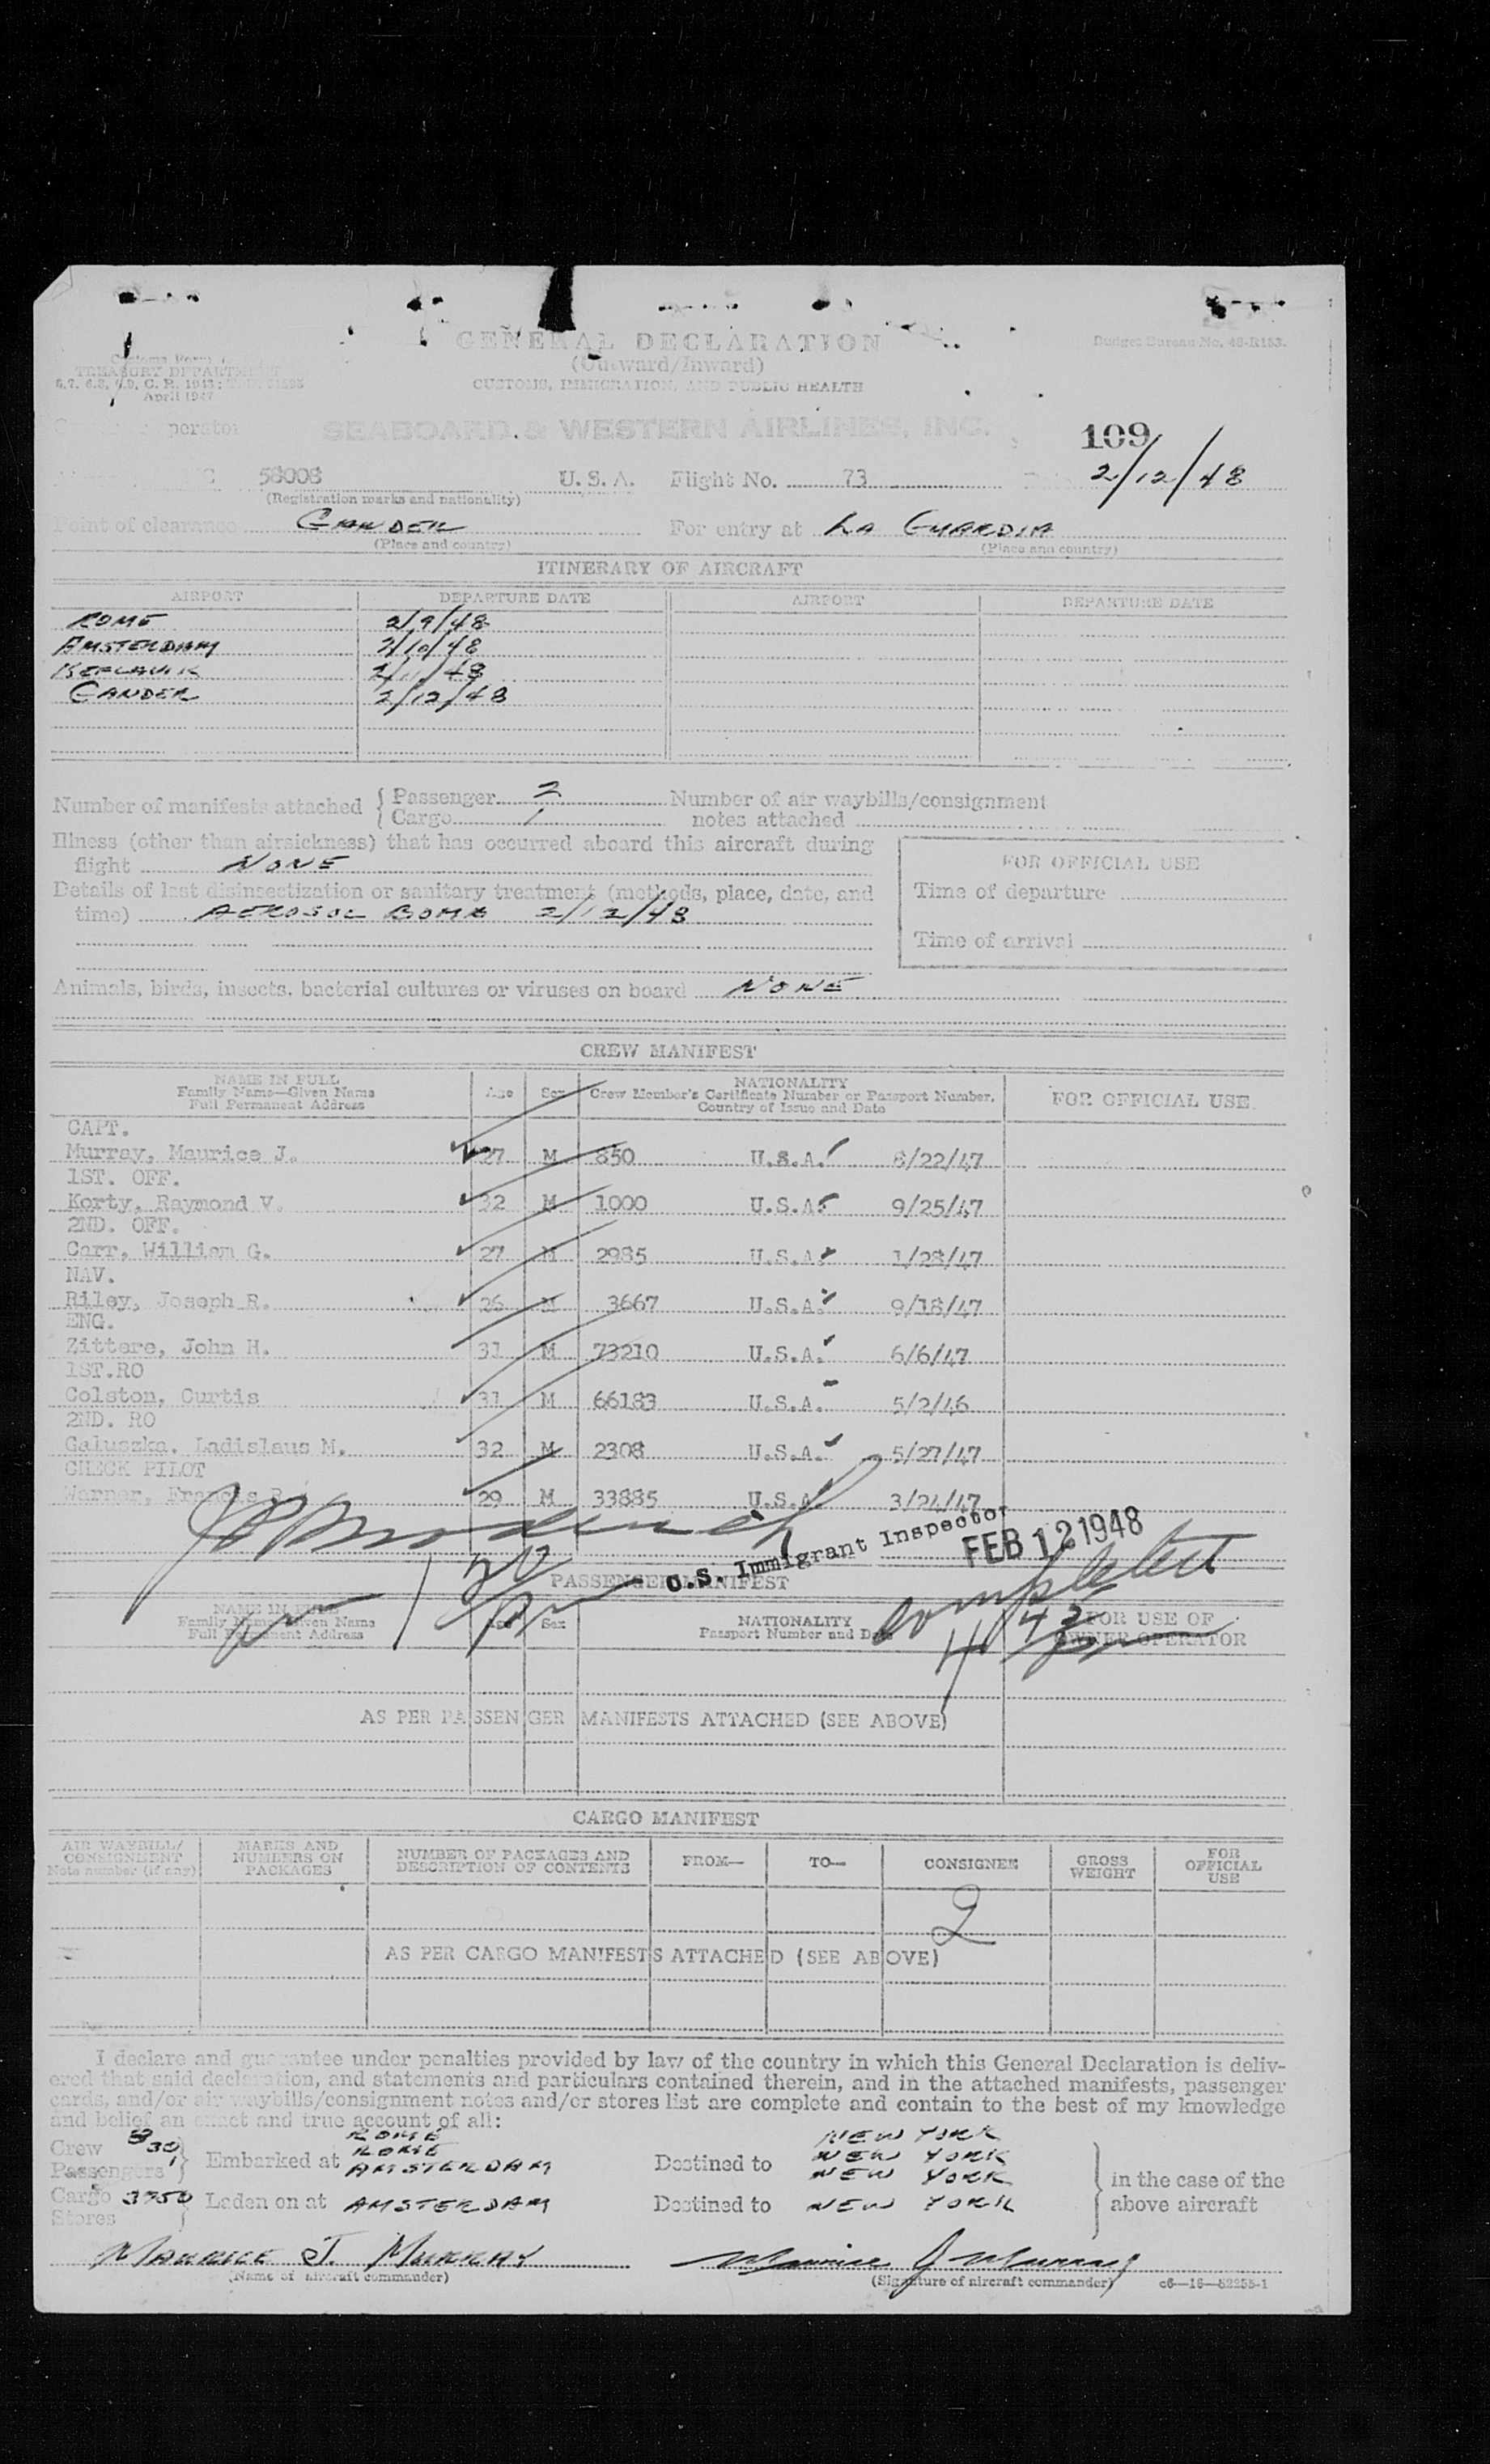 GENERAL DECLARATION
Budget Bureau No. 48-R183.
(Outward/Inward)
TREASURY DEPARTMENT
CUSTOMS, IMMIGRATION, AND PUBLIC HEALTH
April 1947
SEABOARD & WESTERN AIRLINES, INC.
109
58008 U. S. A. Flight No. 73 2/12/48
(Registration marks and nationality)
Point of clearance GANDER For entry at LA GUARDIA
(Place and country) (Place and country)
ITINERARY OF AIRCRAFT
AIRPORT DEPARTURE DATE AIRPORT DEPARTURE DATE
ROME 2/9/48
AMSTERDAM 2/10/48
KEFLAVIK 2/11/48
GANDER 2/12/48
Number of manifests attached { Passenger 2 Number of air waybills/consignment
Cargo 1 notes attached
Illness (other than airsickness) that has occurred aboard this aircraft during
flight NONE
FOR OFFICIAL USE
Details of last disinsectization or sanitary treatment (methods, place, date, and
Time of departure
time) AEROSOL BOMB 2/12/48
Time of arrival
Animals, birds, insects, bacterial cultures or viruses on board NONE
CREW MANIFEST
NAME IN FULL
Family Name—Given Name
Full Permanent Address
Age Sex
NATIONALITY
Crew Member's Certificate Number or Passport Number,
Country of Issue and Date
FOR OFFICIAL USE
CAPT.
Murray, Maurice J. 27 M 850 U.S.A. 8/22/47
1ST. OFF.
Korty, Raymond V. 32 M 1000 U.S.A. 9/25/47
2ND. OFF.
Carr, William G. 27 M 2985 U.S.A. 1/28/47
NAV.
Riley, Joseph R. 26 M 3667 U.S.A. 9/18/47
ENG.
Zittere, John H. 31 M 73210 U.S.A. 6/6/47
1ST.RO
Colston, Curtis 31 M 66183 U.S.A. 5/2/46
2ND. RO
Galuszka, Ladislaus M. 32 M 2308 U.S.A. 5/27/47
CHECK PILOT
Warner, Francis R. 29 M 33885 U.S.A. 3/24/47
U.S. Immigrant Inspector
FEB 12 1948
completed
PASSENGER MANIFEST
NAME IN FULL
Family Name—Given Name
Full Permanent Address
Age Sex
NATIONALITY
Passport Number and Date
FOR USE OF
OWNER OPERATOR
AS PER PASSENGER MANIFESTS ATTACHED (SEE ABOVE)
CARGO MANIFEST
AIR WAYBILL/
CONSIGNMENT
Note number (if any)
MARKS AND
NUMBERS ON
PACKAGES
NUMBER OF PACKAGES AND
DESCRIPTION OF CONTENTS
FROM— TO— CONSIGNEE
GROSS
WEIGHT
FOR
OFFICIAL
USE
2
AS PER CARGO MANIFESTS ATTACHED (SEE ABOVE)
I declare and guarantee under penalties provided by law of the country in which this General Declaration is deliv-
ered that said declaration, and statements and particulars contained therein, and in the attached manifests, passenger
cards, and/or air waybills/consignment notes and/or stores list are complete and contain to the best of my knowledge
and belief an exact and true account of all:
Crew 8 ROME NEW YORK
Passengers 30 Embarked at ROME Destined to NEW YORK in the case of the
1 AMSTERDAM NEW YORK
Cargo 3750 Laden on at AMSTERDAM Destined to NEW YORK above aircraft
Stores
MAURICE J. MURRAY Maurice J Murray
(Name of aircraft commander) (Signature of aircraft commander) c6—16—52255-1